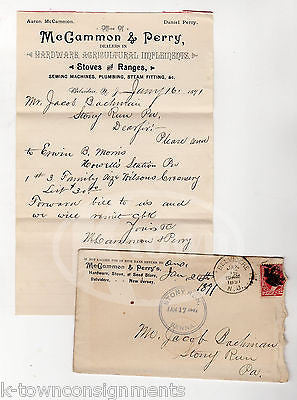 Aaron McCammon.
Daniel Perry.
Office Of
McCammon & Perry,
DEALERS IN
HARDWARE, AGRICULTURAL IMPLEMENTS,
Stoves and Ranges,
SEWING MACHINES, PLUMBING, STEAM FITTING, &c.
Belvidere, N. J. Jany 16 1891
Mr. Jacob Bachman
Stony Run Pa
Dear Sir
Please send
to Erwin B. Morris
Howells Station Pa
1 # 3 Family Creamery
List 30
Forward bill to us and
we will remit
Yours &c
McCammon & Perry
McCammon & Perry's,
Hardware, Stove, & Seed Store,
Belvidere, New Jersey.
ans.
Jan 20th
1891
JAN
1891
N.J.
STONY RUN
JAN 17 1891
PENNA.
Mr. Jacob Bachman
Stony Run
Pa.
k-townconsignments